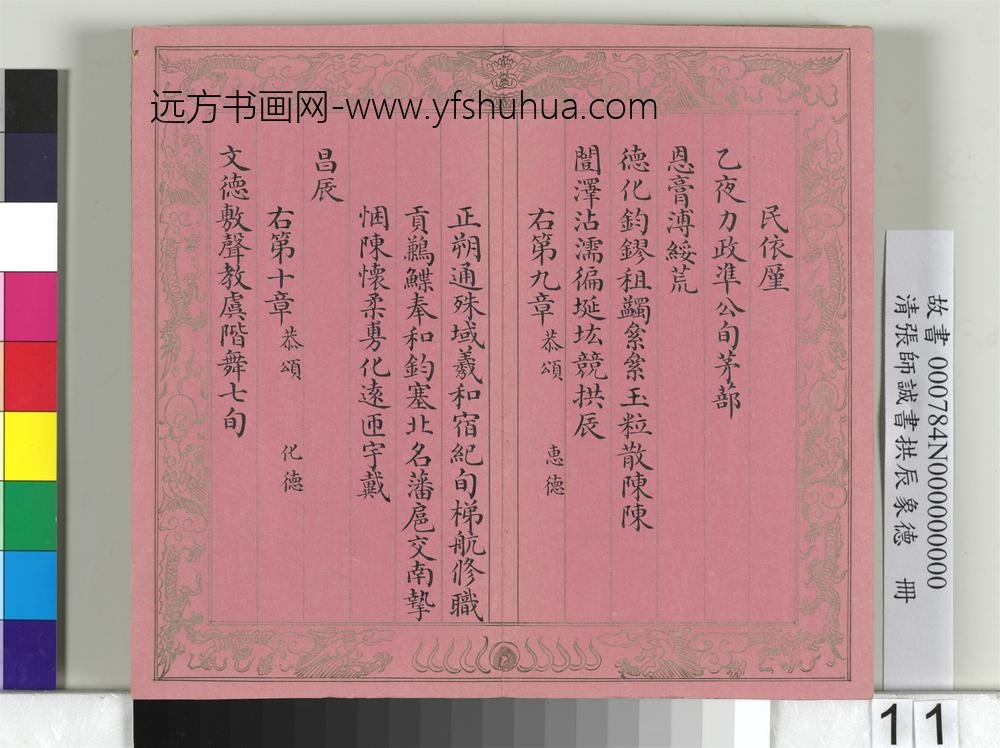 远方书画网-www.yfshuhua.com
民依廑
乙夜力政準公旬茅蔀
恩膏溥綏荒
德化鈞鏐租蠲絫絫玉粒散陳陳
闓澤沾濡徧埏垓競拱辰
右第九章 恭頌 惠德
正朔通殊域羲和宿紀旬梯航修職
貢鶼鰈奉和鈞塞北名藩扈交南摯
悃陳懷柔旉化遠匝宇戴
昌辰
右第十章 恭頌 化德
文德敷聲教虞階舞七旬
故書 000784N000000000
清張師誠書拱辰象德 冊
11